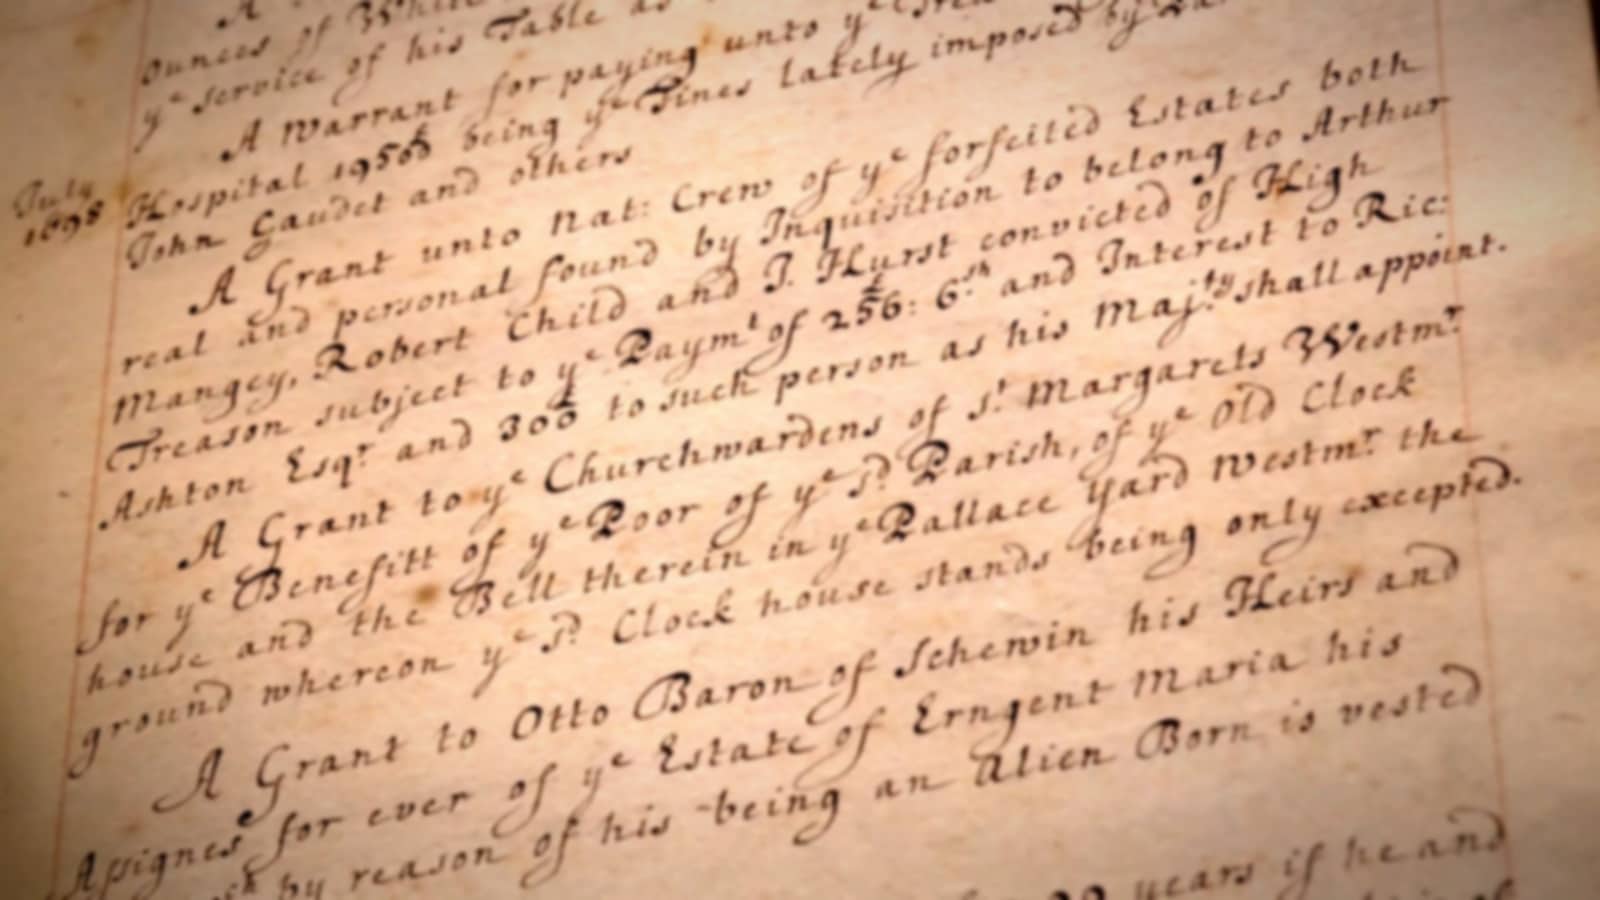 A
Ounces of White
yᵉ service of his Table as
A Warrant for paying unto yᵉ
July 1698 Hospital 1956£ being yᵉ Fines lately imposed by
John Gaudet and others
A Grant unto Nat: Crew of yᵉ forfeited Estates both
real and personal found by Inquisition to belong to Arthur
Mangey, Robert Child and J. Hurst convicted of High
Treason subject to yᵉ Paymᵗ of 256£: 6ˢʰ and Interest to Ric:
Ashton Esqʳ and 300£ to such person as his Maj:ᵗʸ shall appoint.
A Grant to yᵉ Churchwardens of Sᵗ Margarets Westmʳ
for yᵉ Benefitt of yᵉ Poor of yᵉ sᵈ Parish, of yᵉ Old Clock
house and the Bell therein in yᵉ Pallace Yard Westmʳ the
ground whereon yᵉ sᵈ Clock house stands being only excepted.
A Grant to Otto Baron of Schewin his Heirs and
Assignes for ever of yᵉ Estate of Erngent Maria his
by reason of his being an Alien Born is vested
years if he and